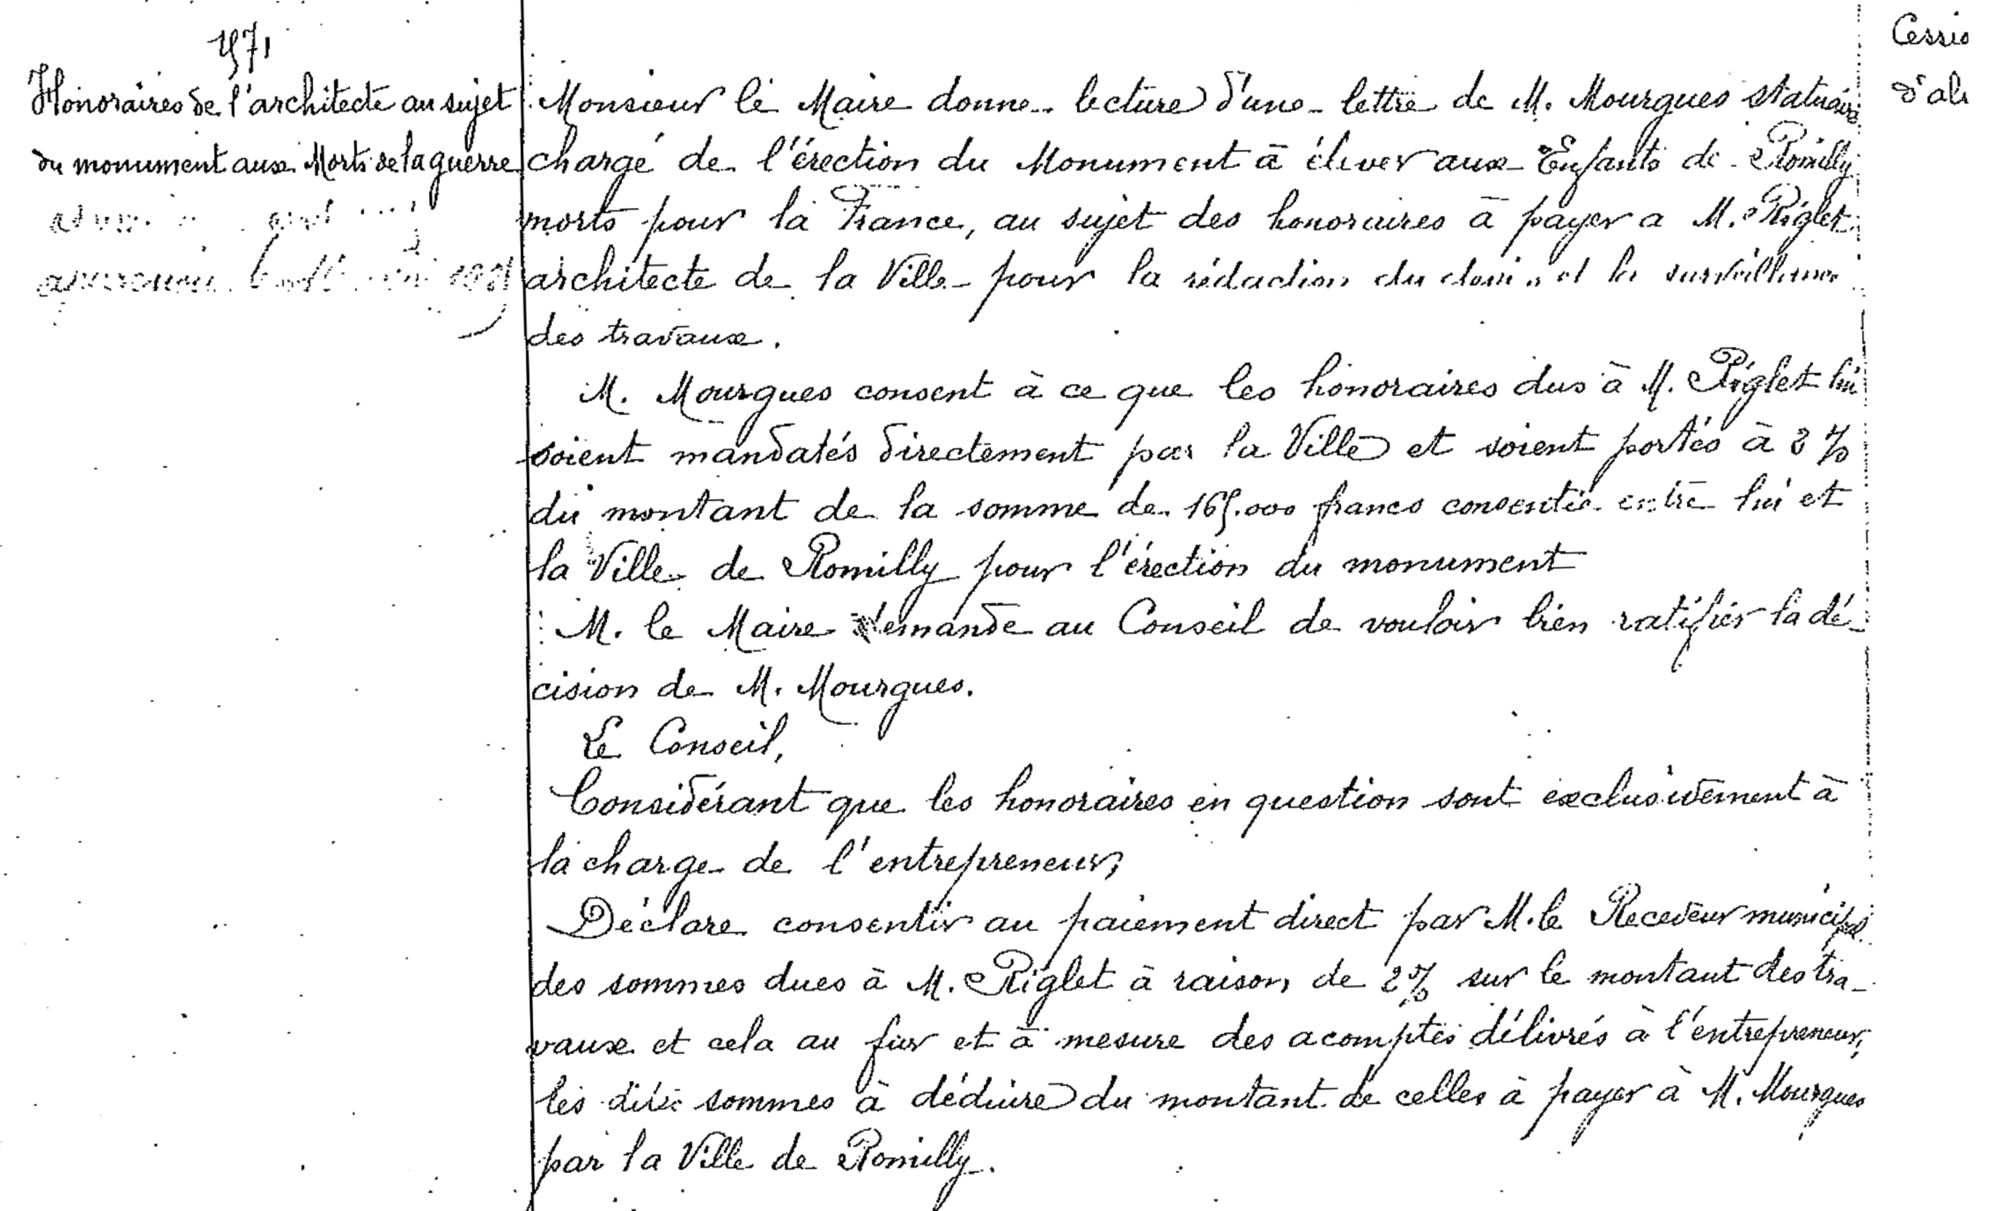 1571
Honoraires de l'architecte au sujet
du monument aux Morts de la guerre
Monsieur le Maire donne lecture d'une lettre de M. Mourgues statuaire
chargé de l'érection du Monument à élever aux Enfants de Romilly
morts pour la France, au sujet des honoraires à payer a M. Riglet
architecte de la Ville pour la rédaction du devis et la surveillance
des travaux.
M. Mourgues consent à ce que les honoraires dus à M. Riglet lui
soient mandatés directement par la Ville et soient portés à 2 %
du montant de la somme de 165.000 francs consentie entre lui et
la Ville de Romilly pour l'érection du monument
M. le Maire demande au Conseil de vouloir bien ratifier la dé-
cision de M. Mourgues.
Le Conseil,
Considérant que les honoraires en question sont exclusivement à
la charge de l'entrepreneur,
Déclare consentir au paiement direct par M. le Receveur municipal
des sommes dues à M. Riglet à raison de 2 % sur le montant des tra-
vaux et cela au fur et à mesure des acomptes délivrés à l'entrepreneur,
les dites sommes à déduire du montant de celles à payer à M. Mourgues
par la Ville de Romilly.
Cessio
d'al